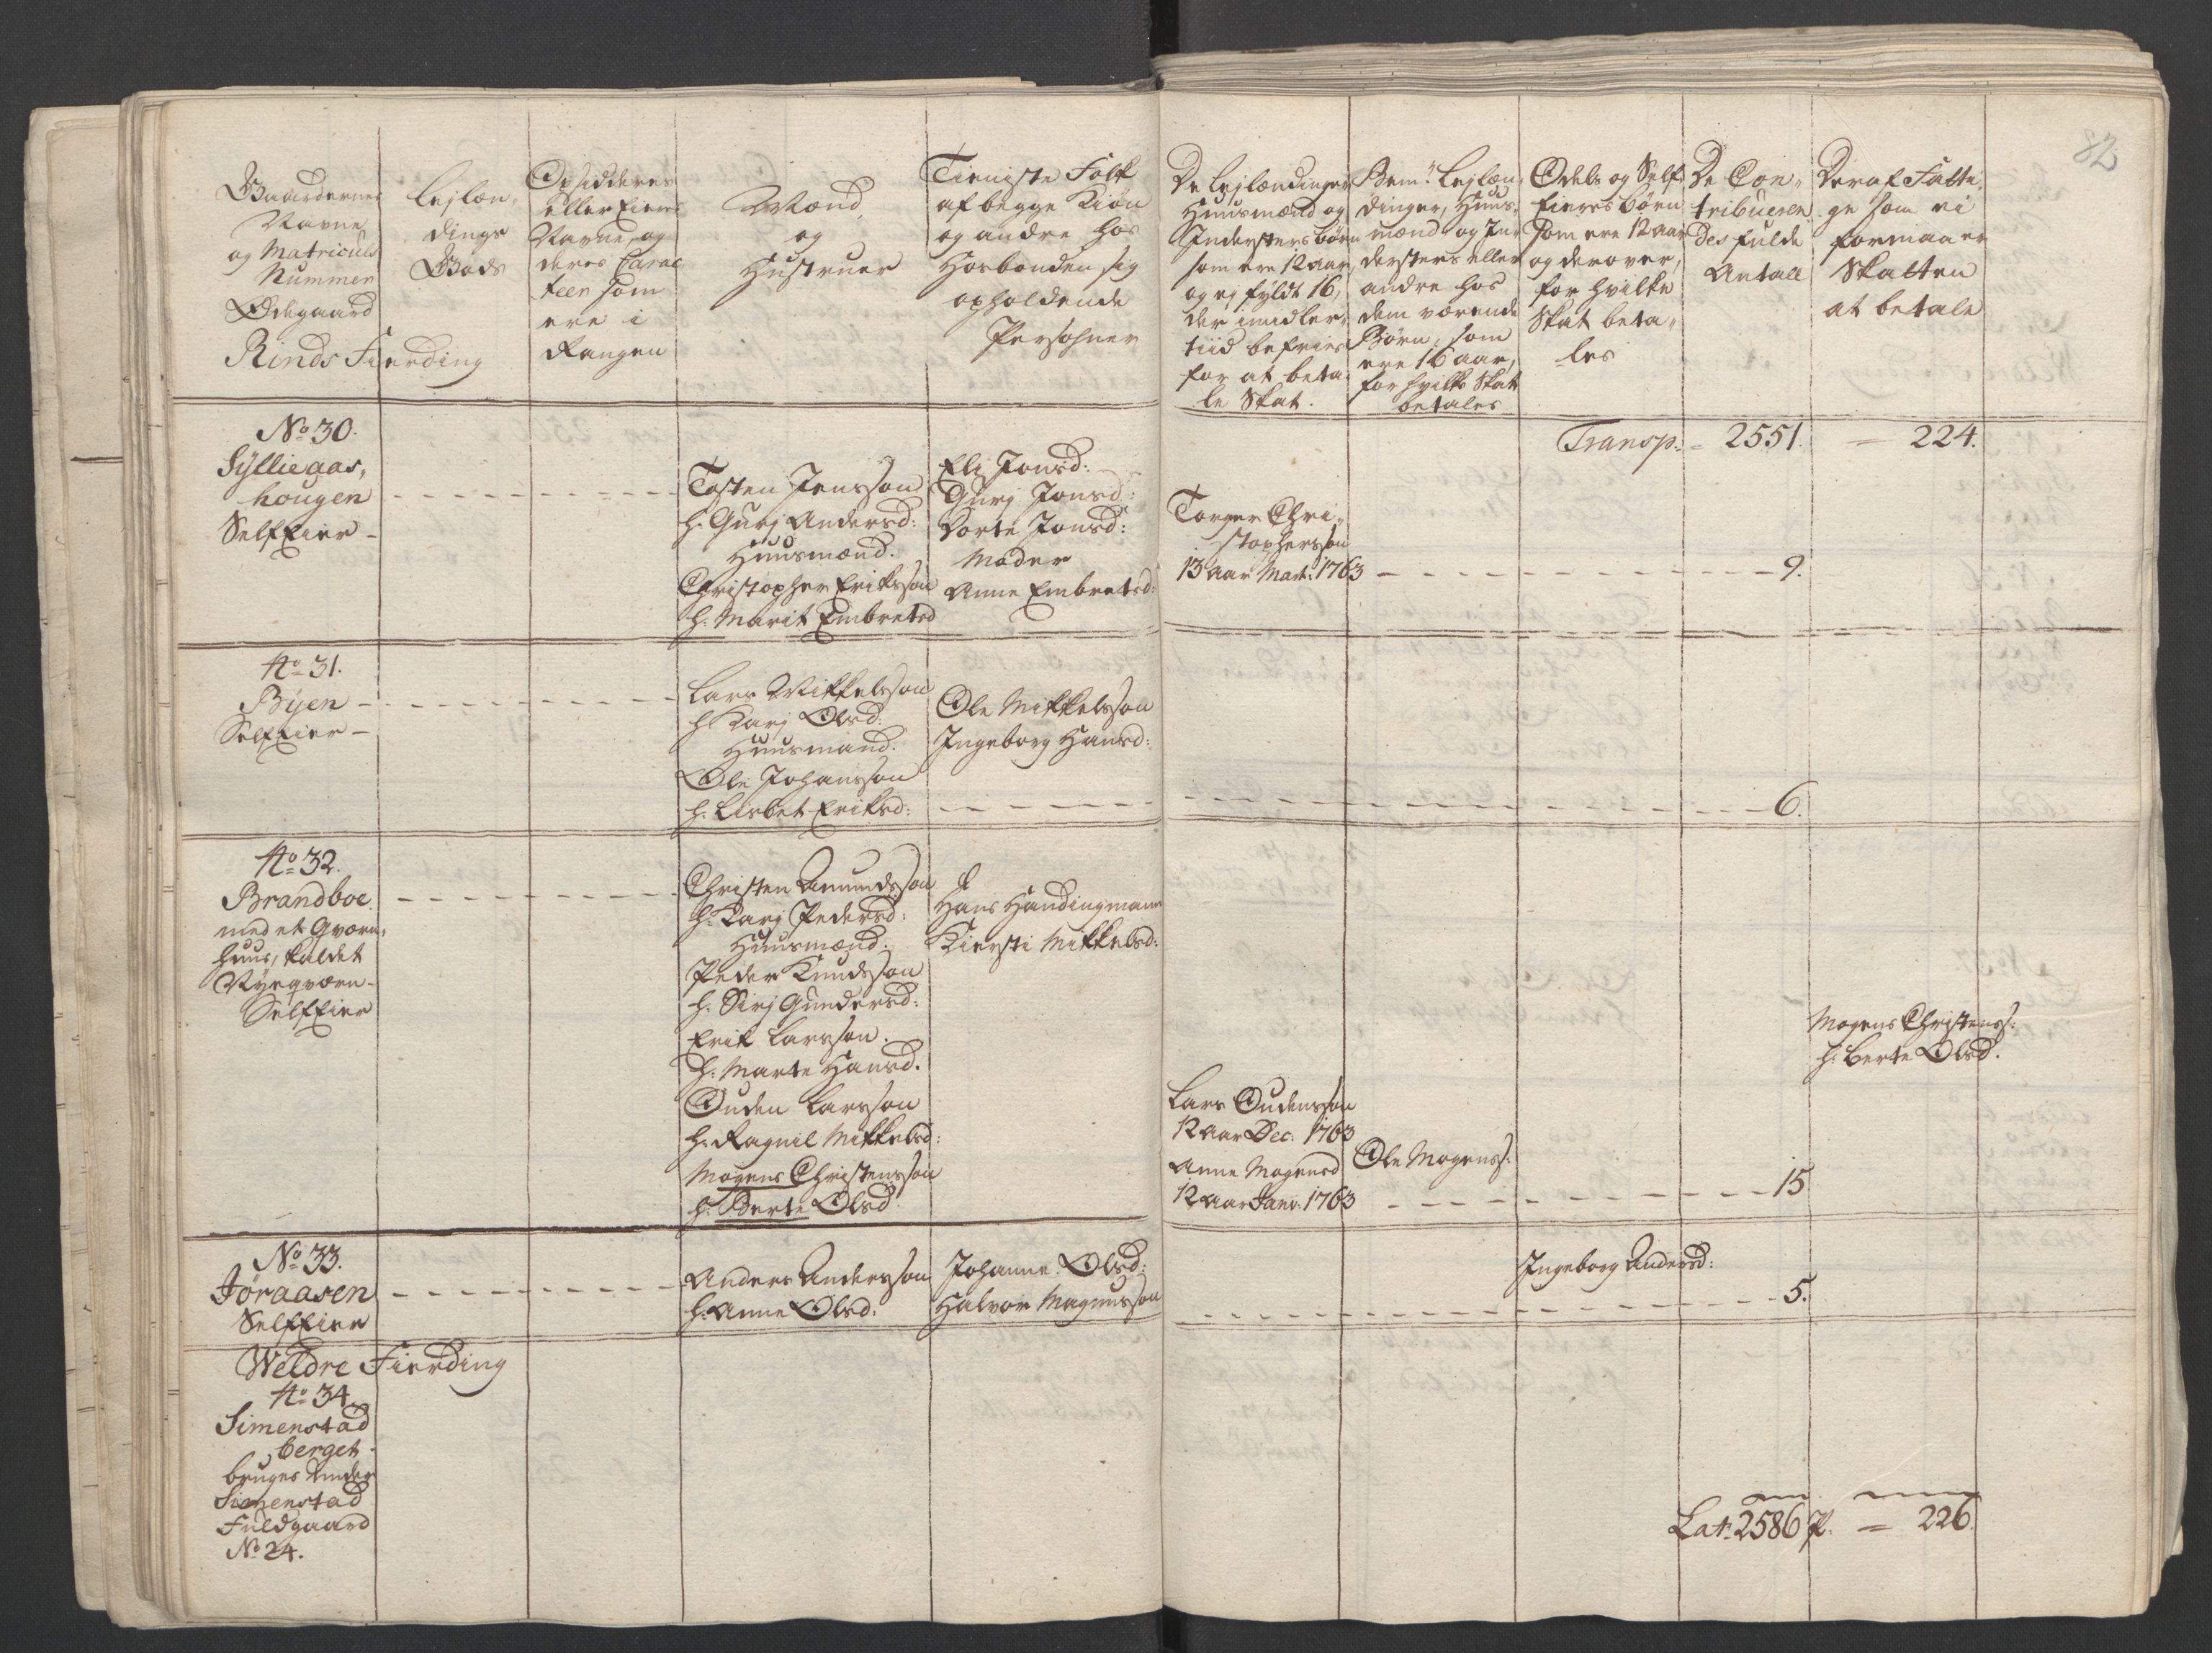 82
Gaardernes
Navne
og Matriculs
Nummer
Ødegaard
Rinds Fierding
Lejlæn,,
dings
Gods
Opsidderes
eller Eiers
Navne, og
deres Carac
teer som
ere i
Rangen
Mænd,
og
Hustruer
Tieniste Folk
af begge Kiøn
og andre hos
Hosbonden sig
opholdende
Persohner
De Lejlændinger
Huusmænd og
Indersters børn
som ere 12 aar,
og ej fyldt 16,
der imidler,,
tiid befries
for at beta,,
le Skat.
Bem.te Lejlæn,,
dinger, Huus,,
mænd og In,,
dersters eller
andre hos
dem værende
Børn, som
ere 16 aar,
for hvilke Skat
betales
Odels og Self,,
Eieres børn
som ere 12 aar
og derover,
for hvilke
Skat beta,,
les
De Con,,
tribueren,,
des fulde
Antall
Deraf Fatti,,
ge som ei
formaaer
Skatten
at betale
Transp: - 2551. - 224.
No 30.
Sÿllieaas,,
hougen
SelfEier -
Tosten Jensson
h. Gurj Andersd:
Huusmænd.
Christopher Eriksson
h. Marit Embretsd
Eli Jonsd:
Gurj Jonsd:
Dorte Jonsd:
Moder
Anne Embretsd:
Torger Chri,,
stophersson
13 aar Mart: 1763 - 9.
No 31.
Bÿen -
SelfEier -
Lars Mikkelsson
h. Karj Olsd.
Huusmand.
Ole Johansson
h. Lisbet Eriksd:
Ole Mikkelsson
Ingeborg Hansd:
6.
No 32.
Brandboe
med et Qværn,,
huus, kaldet
Nÿeqværn -
SelfEier
Christen Amundsson
h. Karj Pedersd:
Huusmænd.
Peder Knudsson
h. Sirj Gundersd:
Erik Larsson.
h: Marte Hansd.
Ouden Larsson
h. Ragnil Mikkelsd:
Mogens Christensson
h. Berte Olsd.
Hans Handingmann
Kiersti Mikkelsd:
Lars Oudensson
12 aar Dec: 1763
Anne Mogensd
12 aar Janv: 1763
Ole Mogenss:
15
Mogens Christenss:
h. Berte Olsd.
No 33.
Jøraasen
SelfEier
Anders Andersson
h. Anne Olsd:
Johanne Olsd:
Halvor Magnusson
Ingeborg Andersd:
5.
Weldre Fierding
No 34.
Simenstad
berget
bruges under
Simenstad
Fuldgaard
No 24.
Lat: 2586 P. - 226.